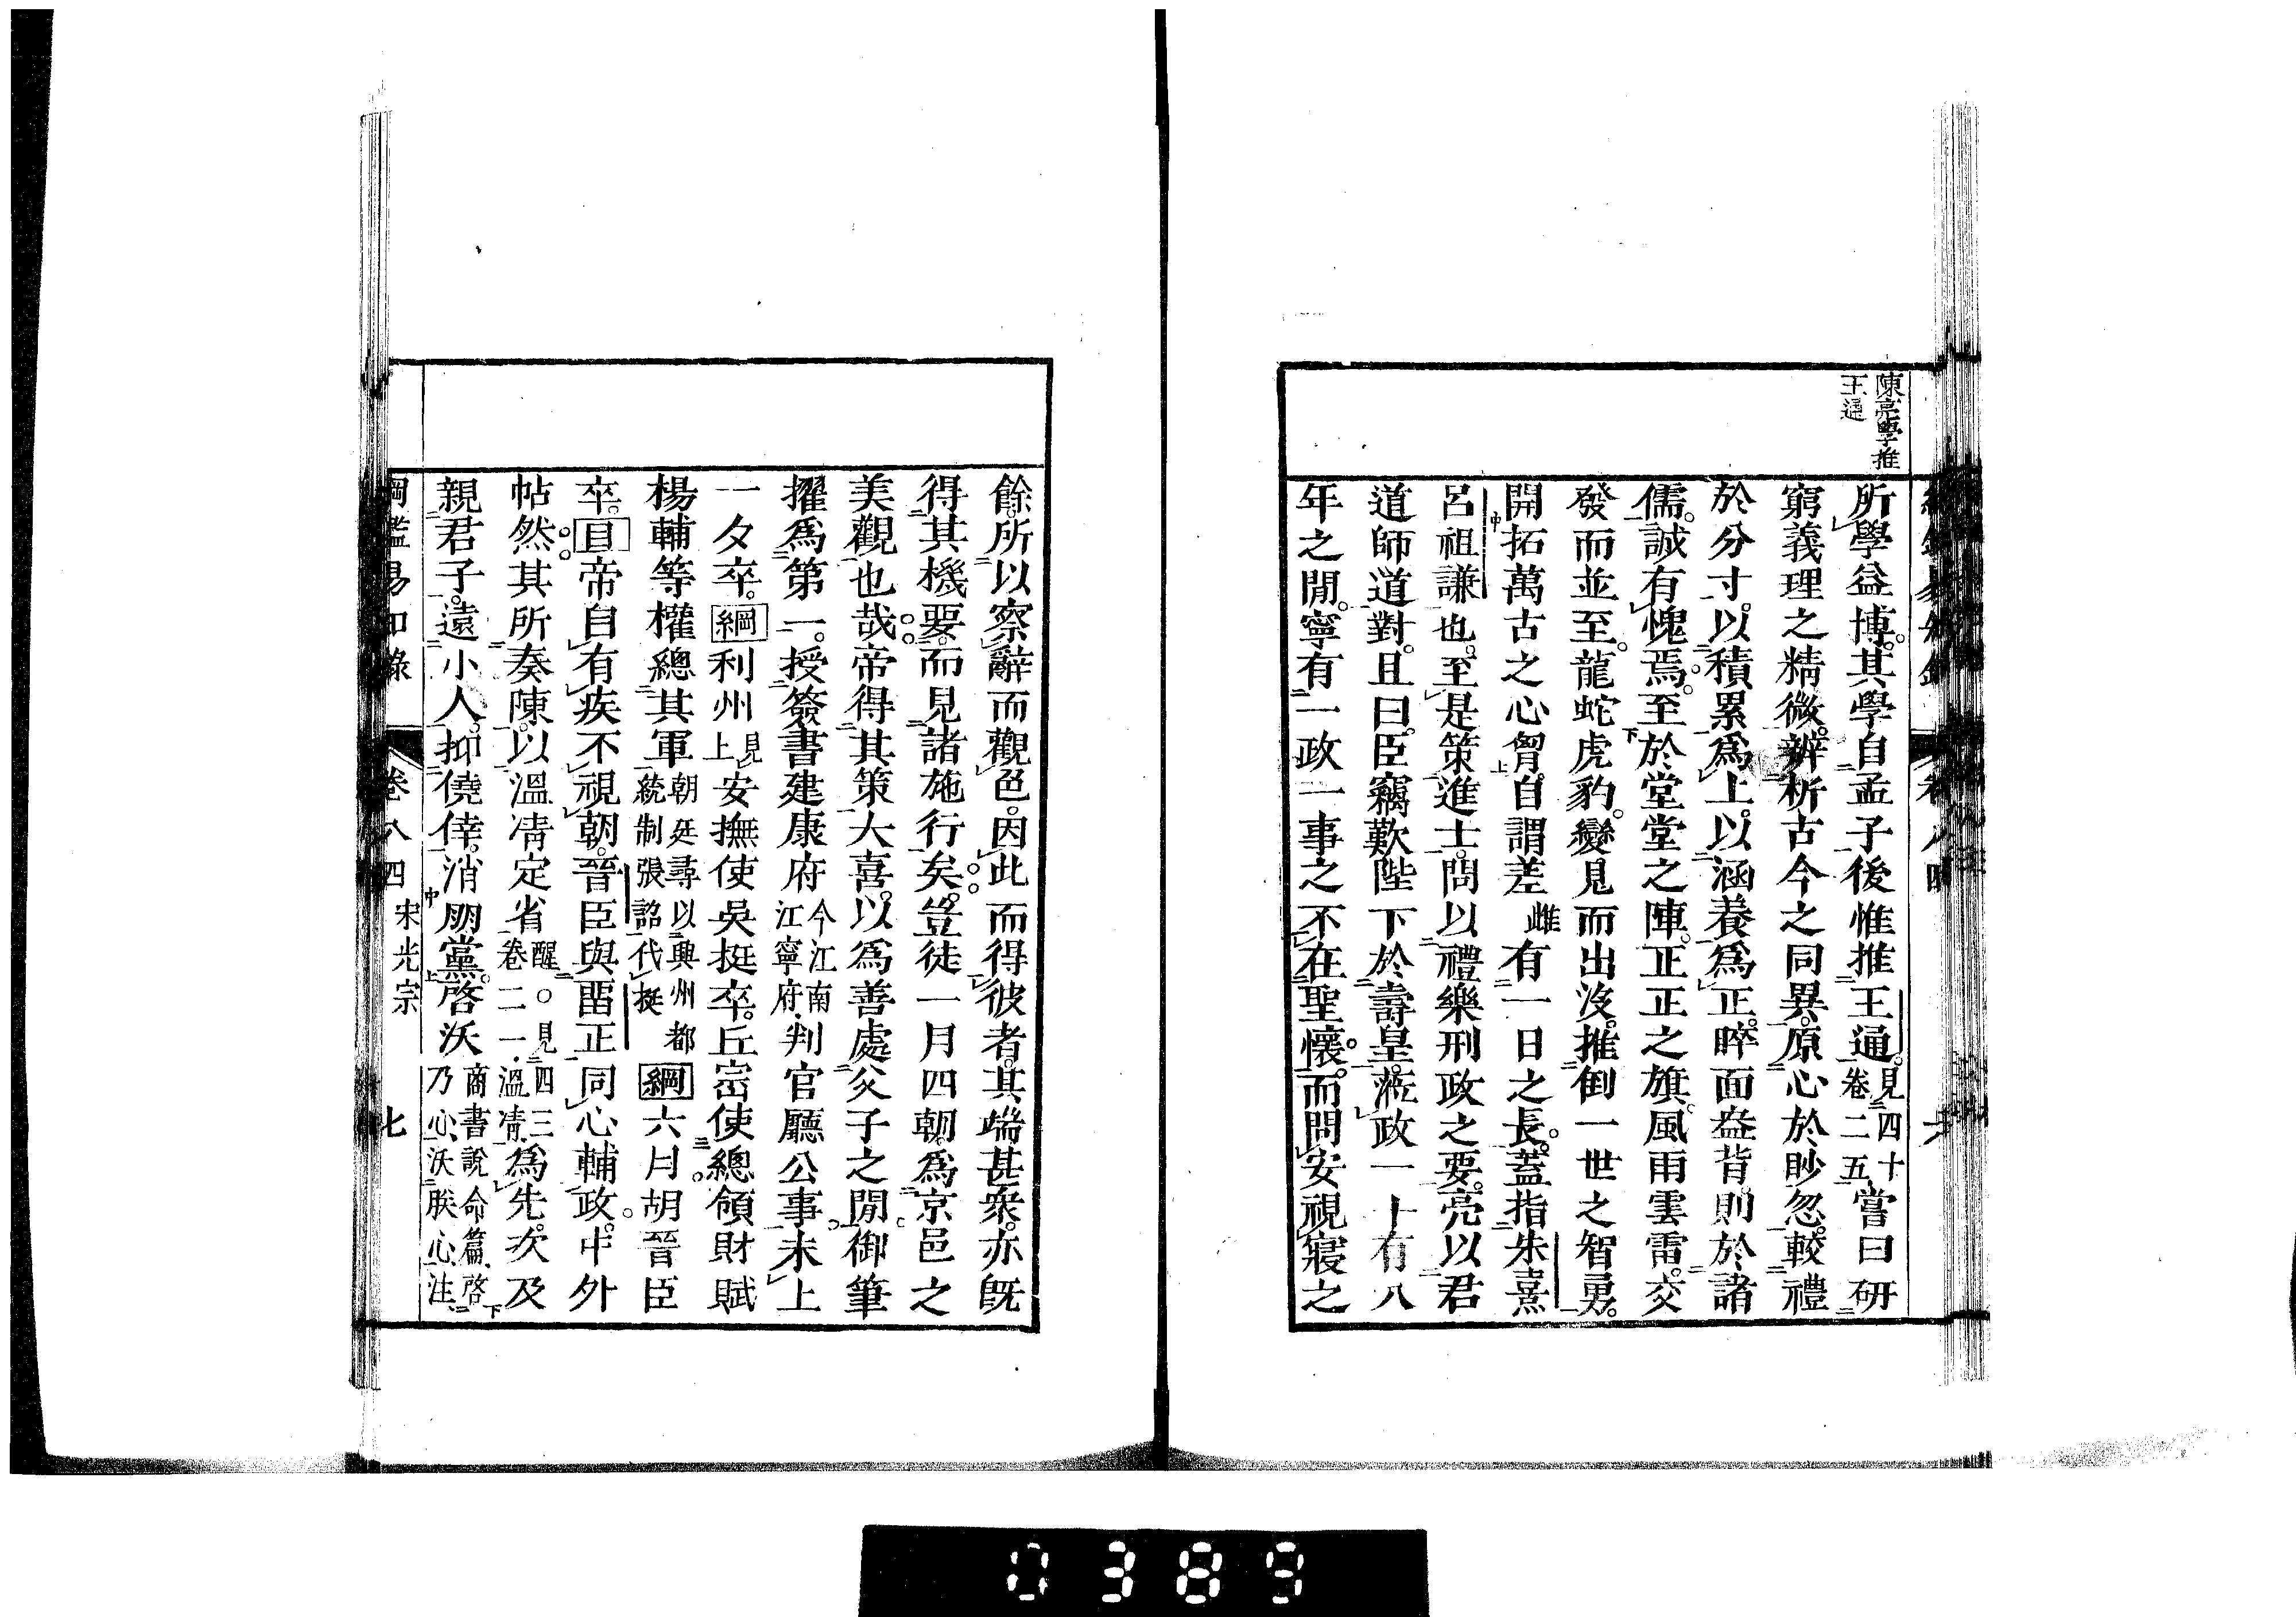 陳亮學推
王通
所學益博。其學自孟子後惟推王通。見四十卷二五嘗曰研
窮義理之精微。辨析古今之同異。原心於眇忽。較禮
於分寸。以積累爲上。以涵養爲正。睟面盎背。則於諸
儒。誠有愧焉。至於堂堂之陣。正正之旗。風雨雲雷。交
發而並至。龍蛇虎豹。變見而出沒。推倒一世之智勇。
開拓萬古之心胷。自謂差雌有一日之長。蓋指朱熹
呂祖謙也。至是策進士。問以禮樂刑政之要。亮以君
道師道對。且曰。臣竊歎陛下於壽皇。蒞政二十有八
年之閒。寧有一政一事之不在聖懷。而問安視寢之
餘。所以察辭而觀色。因此而得彼者。其端甚衆。亦旣
得其機要。而見諸施行矣。豈徒一月四朝。爲京邑之
美觀也哉。帝得其策大喜。以爲善處父子之閒。御筆
擢爲第一。授簽書建康府今江南江寧府判官廳公事。未上
一夕卒。綱利州見上安撫使吳挺卒。丘崈使總領財賦
楊輔等權總其軍朝廷尋以興州都統制張詔代挺綱六月胡晉臣
卒。目帝自有疾不視朝。晉臣與畱正同心輔政。中外
帖然。其所奏陳。以溫凊定省醒○見四三卷二一溫凊爲先。次及
親君子。遠小人。抑僥倖。消朋黨。啓沃商書說命篇啓乃心沃朕心注
綱鑑易知錄
卷八四
宋光宗
七